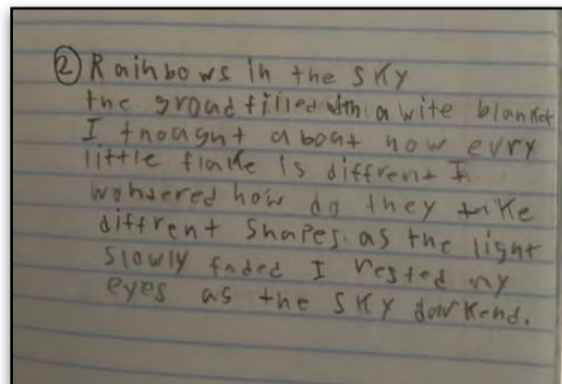 ② Rainbows in the sky
the groud filled with a wite blanket
I thought about how evry
little flake is diffrent I
wondered how do they take
diffrent shapes. as the light
slowly faded I rested my
eyes as the sky darkend.